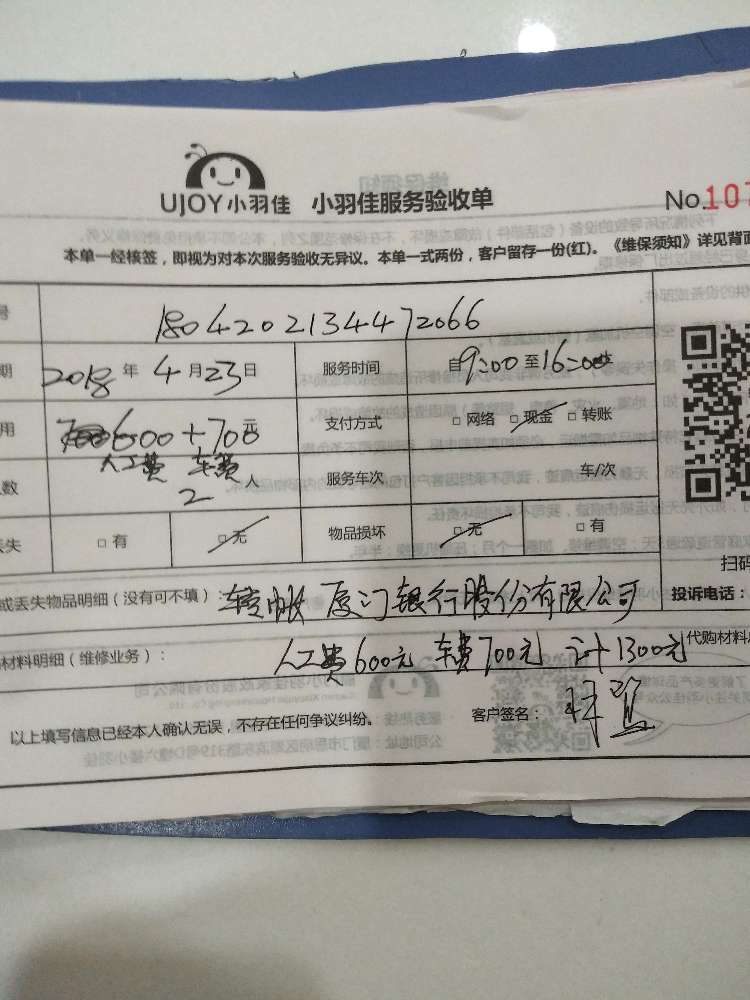 UJOY小羽佳 小羽佳服务验收单 No.107
本单一经核签，即视为对本次服务验收无异议。本单一式两份，客户留存一份(红)。《维保须知》详见背面
号 1804202134472066
期 2018 年 4 月 23 日 服务时间 自 9:00 至 16:00
用 600+700 元 支付方式 □ 网络 □ 现金 □ 转账
人工费 车费
数 2 人 服务车次 车/次
丢失 □ 有 □ 无 物品损坏 □ 无 □ 有
扫码
或丢失物品明细（没有可不填）： 转帐 厦门银行股份有限公司 投诉电话：
材料明细（维修业务）： 人工费600元 车费700元 计1300元 代购材料
以上填写信息已经本人确认无误，不存在任何争议纠纷。 客户签名：